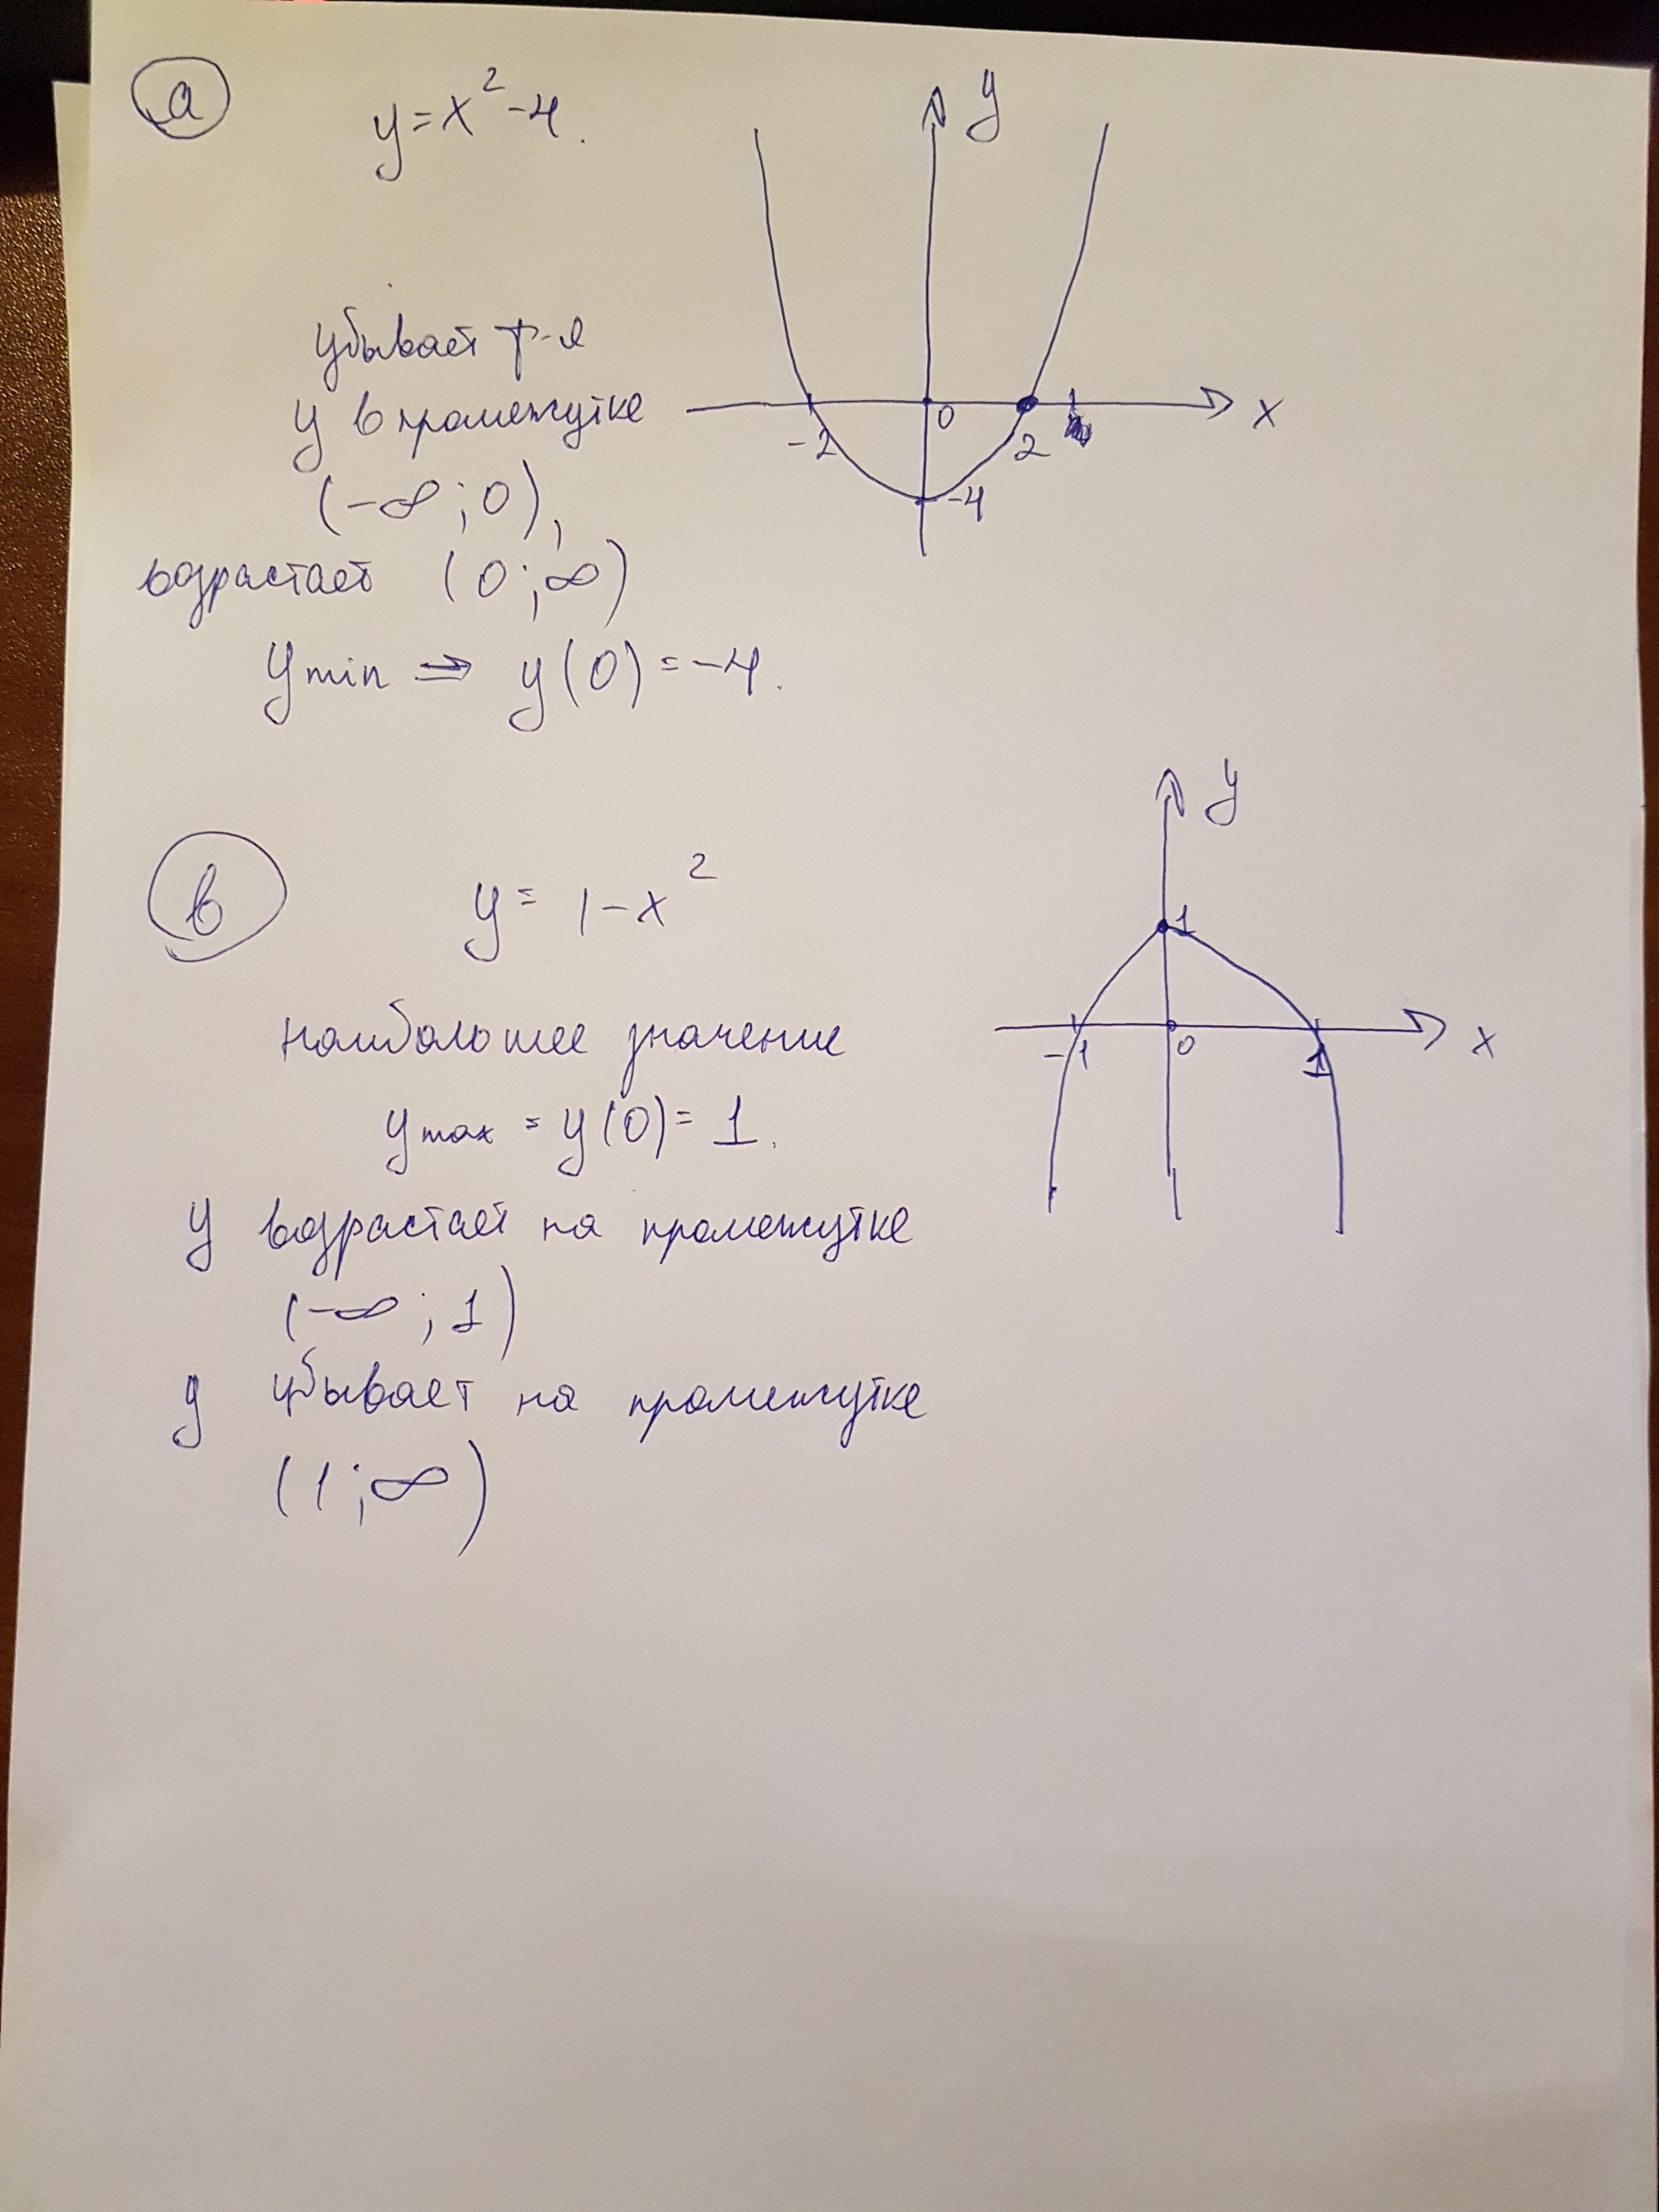 а
y = x² - 4.
y
убывает ф-я
y в промежутке
-2 0 2 x
(-∞; 0),
-4
возрастает (0; ∞)
y min ⇒ y(0) = -4.
y
в
y = 1 - x²
1
наибольшее значение
-1 0 1 x
y max = y(0) = 1.
y возрастает на промежутке
(-∞; 1)
y убывает на промежутке
(1; ∞)